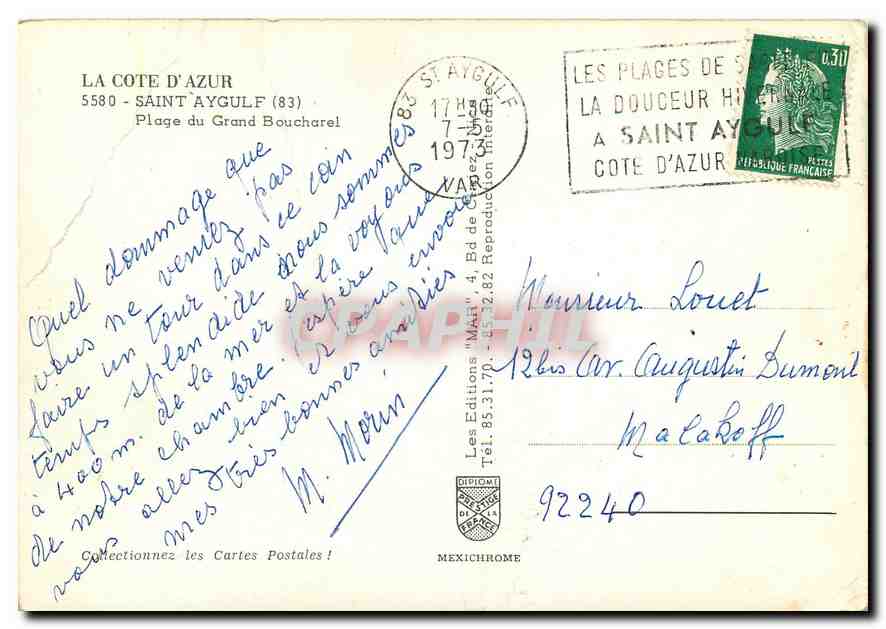 LA COTE D'AZUR
5580 - SAINT AYGULF (83)
Plage du Grand Boucharel
Quel dommage que
vous ne veniez pas
faire un tour dans ce coin
temps splendide nous sommes
à 400 m. de la mer et la voyons
de notre chambre. J'espère que
vous allez bien et vous envoie
mes très bonnes amitiés
M. Morin
Collectionnez les Cartes Postales !
Les Editions "MAR", 4, Bd de
Tél. 85.31.70. - 85.32.82 Reproduction interdite
DIPLOME
PRESTIGE
DE LA
FRANCE
MEXICHROME
83 ST AYGULF
17H
7-
1973
VAR
LES PLAGES DE
LA DOUCEUR
A SAINT AYGULF
COTE D'AZUR
0,30
POSTES
REPUBLIQUE FRANCAISE
Monsieur Louet
12 bis Av. Augustin Dumont
Malakoff
92240
CPAPHIL